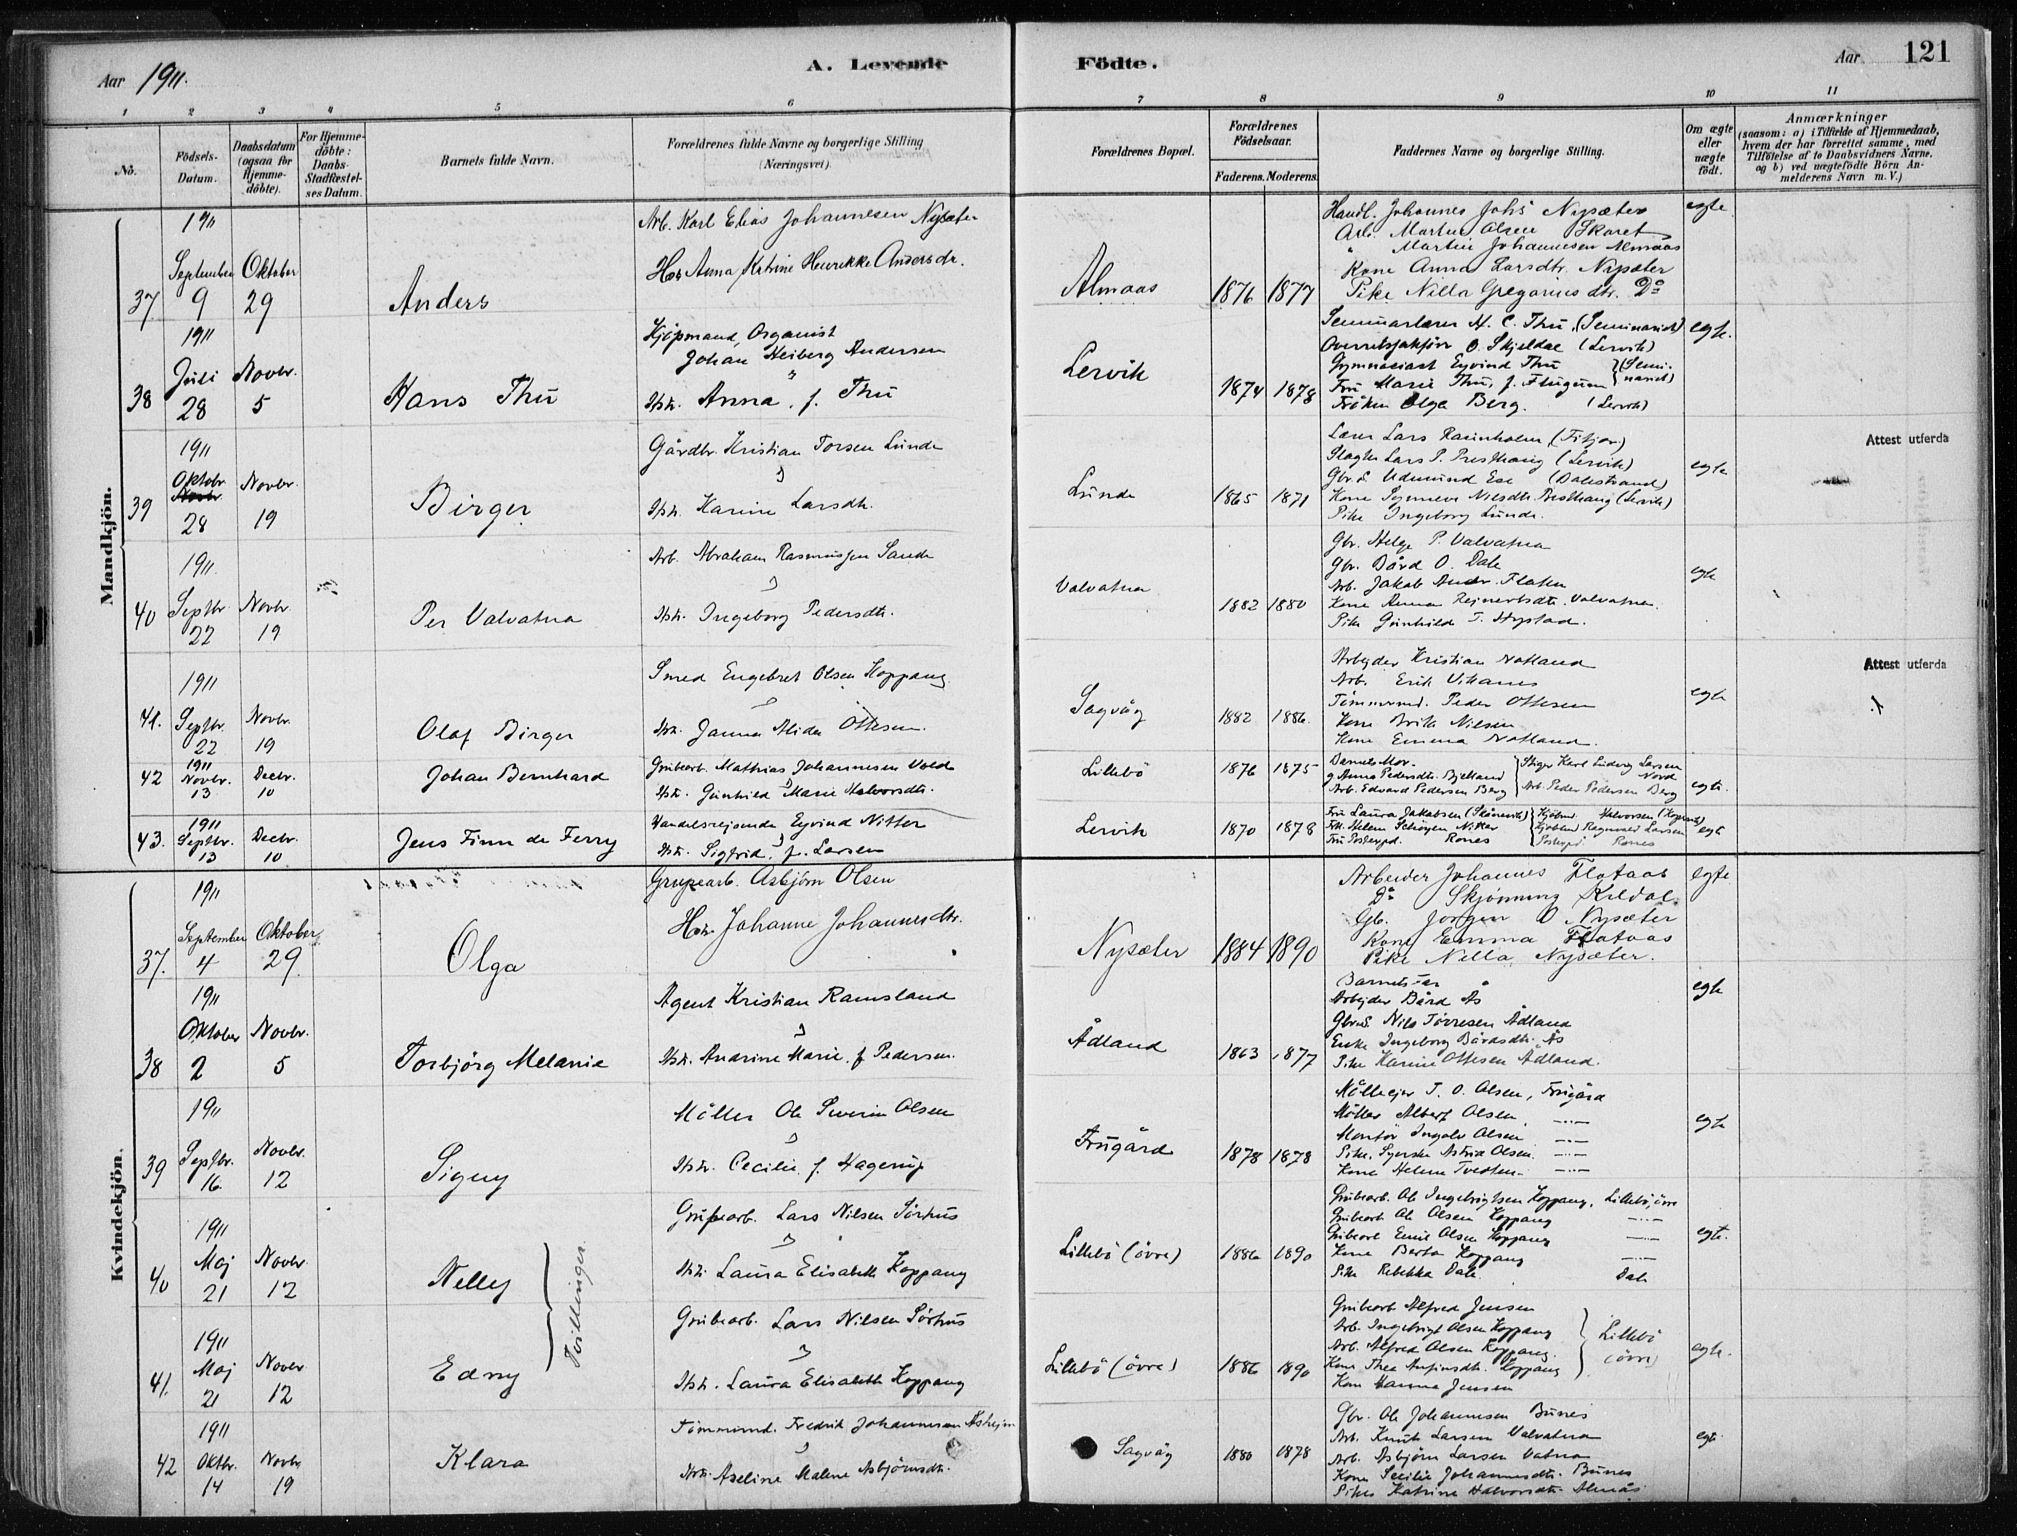 Aar 1911.
A. Levende Födte.
Aar 121
1 2 3 4 5 6 7 8 9 10 11
No.
Födsels-Datum.
Daabsdatum (ogsaa for Hjemme-döbte).
For Hjemme-döbte: Daabs-Stadfæstel-ses Datum.
Barnets fulde Navn.
Forældrenes fulde Navne og borgerlige Stilling (Næringsvei)
Forældrenes Bopæl.
Forældrenes Födselsaar.
Faderens. Moderens.
Faddernes Navne og borgerlige Stilling.
Om ægte eller uægte födt.
Anmærkninger
(saasom: a) i Tilfælde af Hjemmedaab, hvem der har forrettet samme, med Tilföielse af to Daabsvidners Navne, og b) ved uægtefödte Börn Anmelderens Navn m. V.)
Mandkjön.
37. 1911 September 9 Oktober 29
Anders
Arb. Karl Elias Johannesen Nysæter
Hs. Anna Katrine Henrikke Andersdr.
Almaas 1876 1877
Handl. Johannes Johs Nysæter
Arb. Martin Olsen Skaret
" Martin Johannesen Almaas
Kone Anna Larsdtr. Nysæter
Pike Nilla Gregorius dtr. Do
egte
38 1911 Juli 28 Novbr. 5
Hans Thu
Kjöpmand, Organist
Johan Heiberg Andersen
Hstr. Anna, f. Thu
Lervik 1874 1878
Seminarlærer H. C. Thu, (Seminariet)
Overretssakförer O. Skjeldal (Lervik)
Gymnasiast Eyvind Thu
Fru Marie Thu, f. Flugum (Seminariet)
Fröken Olga Berg. (Lervik)
egte.
39 1911 Oktobr. 28 Novbr. 19
Birger
Gårdbr. Kristian Torsen Lunde
Hstr. Karine Larsdtr.
Lunde 1865 1871
Lærer Lars Rasmholm (Fitjar)
Slagter Lars P. Presthaug (Lervik)
Gbr.s. Udmund Ese (Balestrand)
Kone Synneve Nilsdtr. Presthaug (Lervik)
Pike Ingeborg Lunde.
egte
Attest utferda
40 1911. Septbr. 22 Novbr. 19
Per Valvatna
Arb. Abraham Rasmussen Sande
Hstr. Ingeborg Pedersdtr.
Valvatna 1882 1880
Gbr. Helge P. Valvatna
Gbr. Bård O. Dale
Arb. Jakob Andr. Flaten
Kone Anna Rejnertsdtr. Valvatna.
Pike Gunhild T. Hystad.
egte
41. 1911 Septbr. 22 Novbr. 19
Olaf Birger
Smed Engebret Olsen Koppang
Hstr. Janna Alida Ottesen.
Sagvåg 1882 1886.
Arbejder Kristian Notland
Arb. Erik Vikanes
Tömmermd. Peder Ottesen
Kone Brita Nilsen
Kone Emma Notland.
egte
Attest utferda
42 1911 Novbr. 13 Decbr. 10
Johan Bernhard
Grubearb. Mathias Johannesen Vold
Hstr. Gunhild Marie Halvorsdtr.
Lillebö 1876 1875
Barnets Mor.
g Anna Pedersdtr. Bjelland
Arb. Edvard Pedersen Berg
Stiger Karl Ludvig Larsen Nord
Arb. Peder Pedersen Berg
egte.
43. 1911 Septbr. 13 Decbr. 10
Jens Finn de Ferry
Handelsrejsende Eyvind Nitter
Hstr. Sigfrid, f. Larsen
Lervik 1870 1878
Fru Laura Jakobsen (Skånevik)
Frk. Helene Schröyen Nitter
Fru Postexpd. Rones
Kjöbmd. Halvorsen
Kjöbmd Ragnvald Larsen
Postexpd Rones
egte
Kvindekjön.
37. 1911 September 4 Oktober 29
Olga
Grupearb. Asbjörn Olsen
Hstr. Johanne Johannesdtr.
Nysæter 1884 1890
Arbeider Johannes Flataas
Do Skjönning Kildal
Gb. Jörgen O Nysæter
Kone Emma Flataas
Pike Nilla Nysæter.
egte
38 1911 Oktober 2 Novbr. 5
Torbjörg Melanie
Agent Kristian Ramsland
Hstr. Andrine Marie, f Pedersen.
Ådland 1863 1877
Barnets far
Arbejder Bård Ås
Gbr.s. Nils Törresen Ådland
Enke Ingeborg Bårdsdtr. Ås
Pike Karine Ottesen Ådland.
egte
39 1911 Septbr. 16 Novbr. 12
Signy
Möller Ole Severin Olsen
Hstr. Cecilie, f. Hagerup
Frugård 1878 1878
Mölleejer T. O. Olsen, Frugård
Möller Albert Olsen —"—
Montör Ingolv Olsen —"—
Pike, Syerske Astrid Olsen —"—
Kone Helene Tvedten —"—
egte
40 1911 Maj 21 Novbr. 12
Nelly
Tvillinger.
Grubearb. Lars Nilsen Sörhus
Hstr. Laura Elisabeth Koppang
Lillebö (övre) 1886 1890
Grubearb. Ole Ingebrigtsen Koppang, Lillebö, övre
Grubearb Ole Olsen Koppang —"—
Grubearb Emil Olsen Koppang —"—
Kone Berta Koppang —"—
Pike Rebekka Dale. Dale
egte.
41. 1911 Maj 21 Novbr 12
Edny
Grubearb. Lars Nilsen Sörhus
Hstr. Laura Elisabeth Koppang
Lillebö (övre) 1886 1890
Grubearb Alfred Jensen
Arb. Ingebrigt Olsen Koppang
Arb. Alfred Olsen Koppang.
Kone Thea Anfinsdtr. Koppang
Kone Hanna Jensen
Lillebö (övre)
egte.
42 1911 Oktbr. 14 Novbr 19
Klara
Tömmermd. Fredrik Johannesen
Hstr. Aseline Malene Asbjörnsdtr.
Sagvåg 1880 1878
Gbr. Ole Johannesen Bunes
Arb. Knut Larsen Valvatna
Arb. Asbjörn Larsen Vatna
Kone Secilie Johannesdtr. Bunes
Pike Katrine Halvorsdtr. Almås
egte